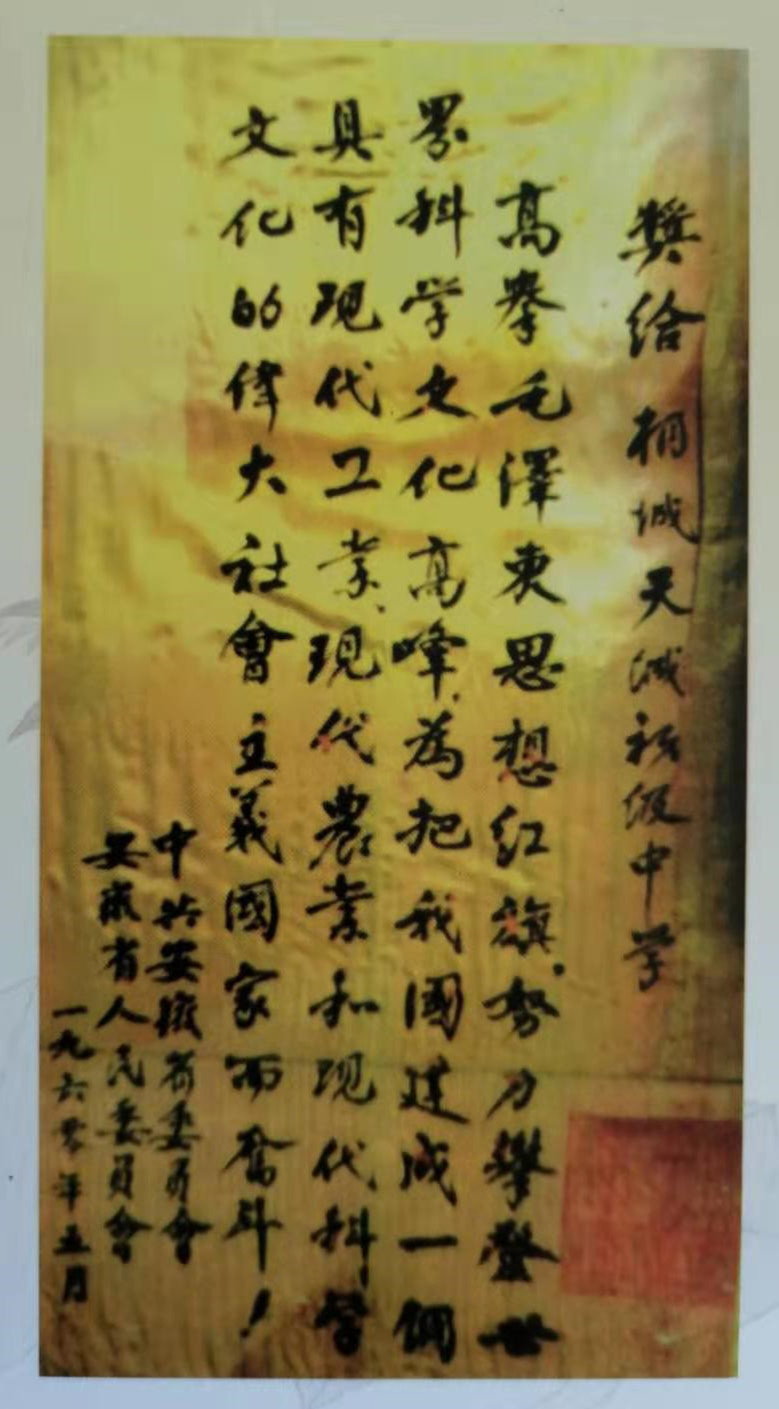 奬给 桐城天城初级中学
高举毛澤东思想红旗,努力攀登世
界科学文化高峰,為把我國建成一個
具有现代工業、现代農業和现代科学
文化的偉大社會主義國家而奮斗!
中共安徽省委員會
安徽省人民委員會
一九六零年五月